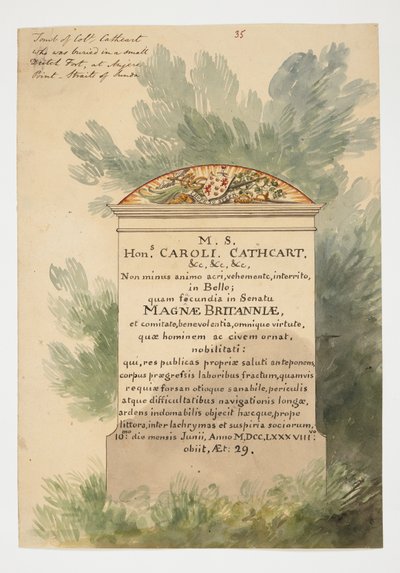 35
Tomb of Col.l Cathcart
who was buried in a small
Dutch Fort, at Anjere
Point - Straits of Sunda
M. S.
Hon.s CAROLI. CATHCART.
&c, &c, &c,
Non minus animo acri, vehemente, interrito,
in Bello;
quam fecundia in Senatu
MAGNÆ BRITANNIÆ,
et comitate, benevolentia, omnique virtute,
quæ hominem ac civem ornat,
nobilitati:
qui, res publicas propriæ saluti anteponem,
corpus prægressis laboribus fractum, quamvis
requie forsan otioque sanabile, periculis
atque difficultatibus navigationis longæ,
ardens indomabilis objecit hæcque, prope
littora, inter lachrymas et suspiria sociorum,
10:mo die mensis Junii, Anno M,DCC,LXXXVIII:vo
obiit, Æt: 29.